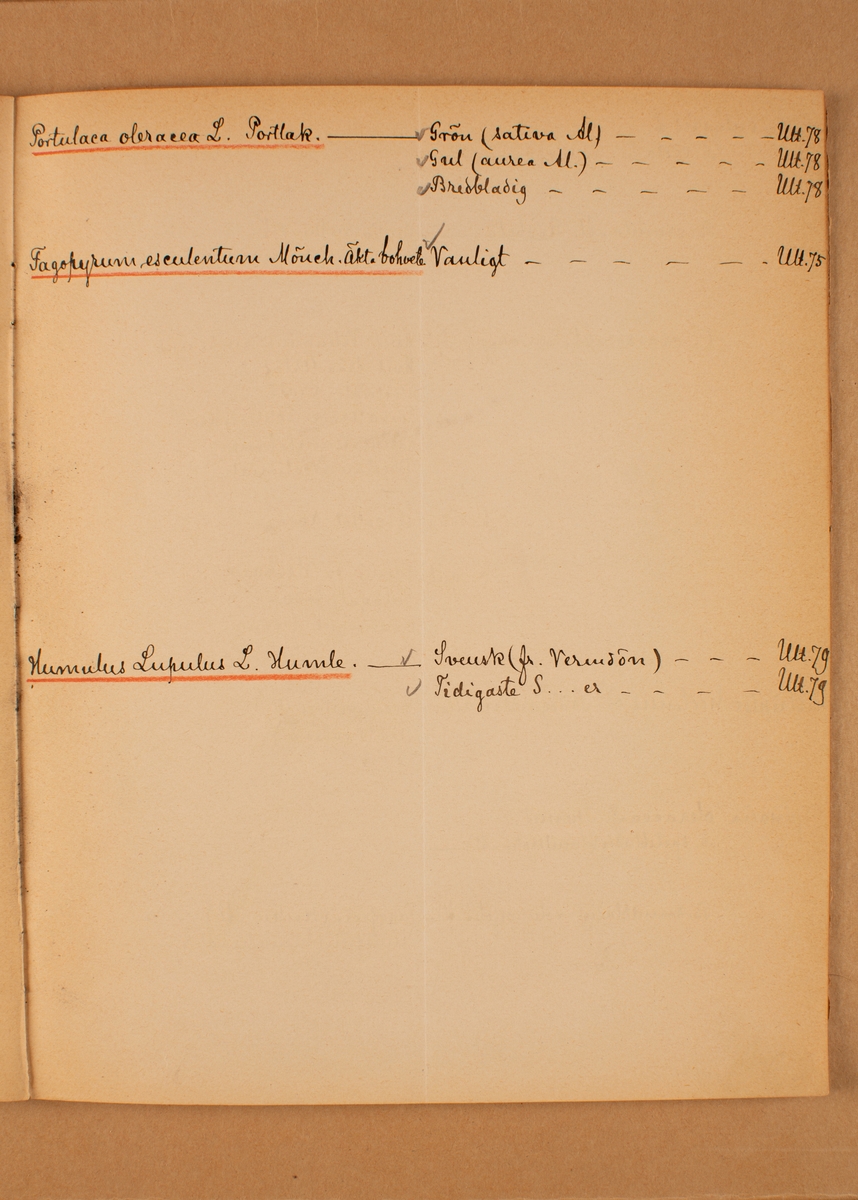 Portulaca oleracea L. Portlak. ——— ✓ Grön (sativa Al) — – – – – Utt. 78
✓ Gul (aurea Al.) – – – – – Utt. 78
✓ Bredbladig – – – – – Utt. 78
Fagopyrum esculentum Mönch. Äkt. bohvete ✓ Vanligt – – – – – – Utt. 75
Humulus Lupulus L. Humle. — ✓ Svensk (fr. Vermdön) – – – Utt. 79
✓ Tidigaste S... er – – – – Utt. 79